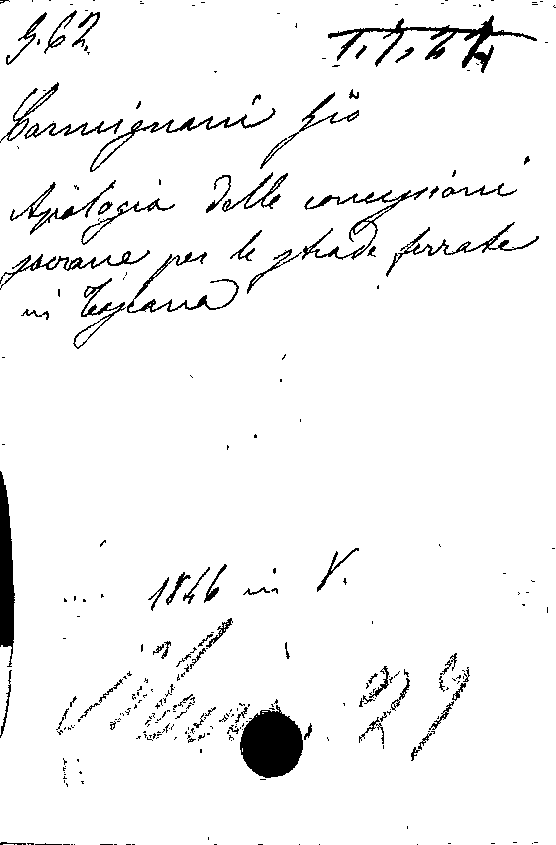 G. 62.
1.7.24
Carmignani Gio
Apologia delle concessioni
sovrane per le strade ferrate
in Toscana
1846 in 8.
29